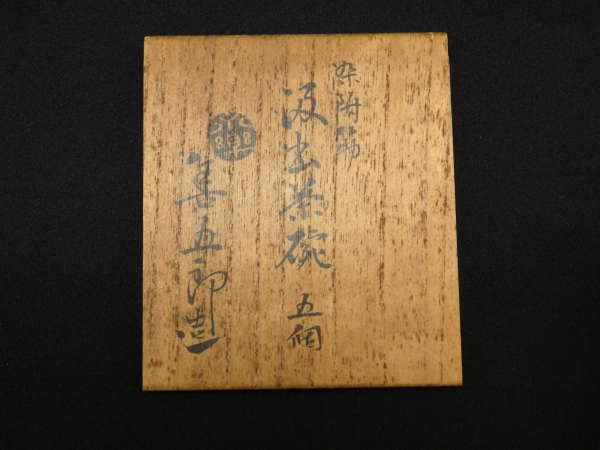 染附筋
汲出茶碗 五個
善五郎造